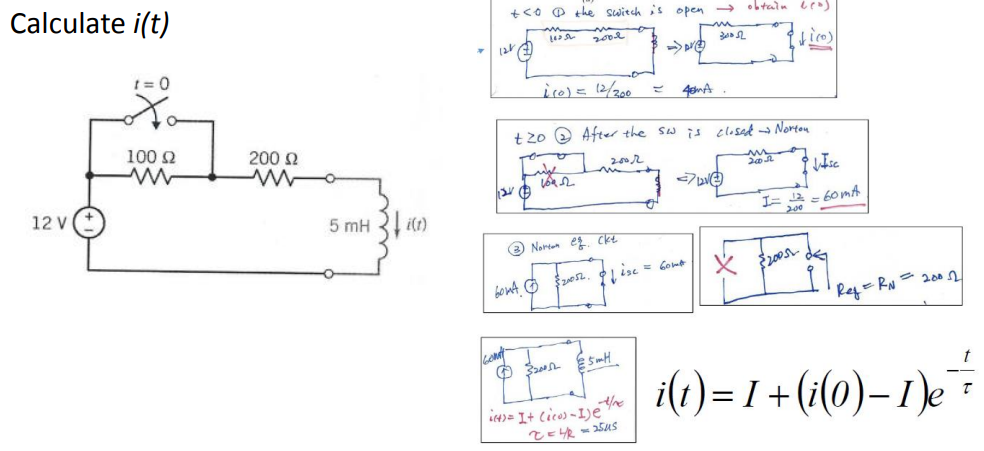 Calculate i(t)
t = 0
100 Ω
200 Ω
12 V
+
−
5 mH
i(t)
t<0 ① the switch is open → obtain i(0)
100Ω 200Ω
12V
⇒ 12V
300Ω
↓ i(0)
i(0) = 12/300 = 40mA.
t≥0 ② After the sw is closed → Norton
200Ω
100Ω
12V
⇔ 12V
200Ω
↓ Isc
I = 12/200 = 60mA
③ Norton eq. ckt
60mA
200Ω.
↓ isc = 60mA
X
200Ω
Req = RN = 200Ω
60mA
200Ω
5mH
i(t) = I + (i(0) - I)e^-t/τ
τ = L/R = 25μS
i(t) = I + (i(0) − I)e^−t/τ